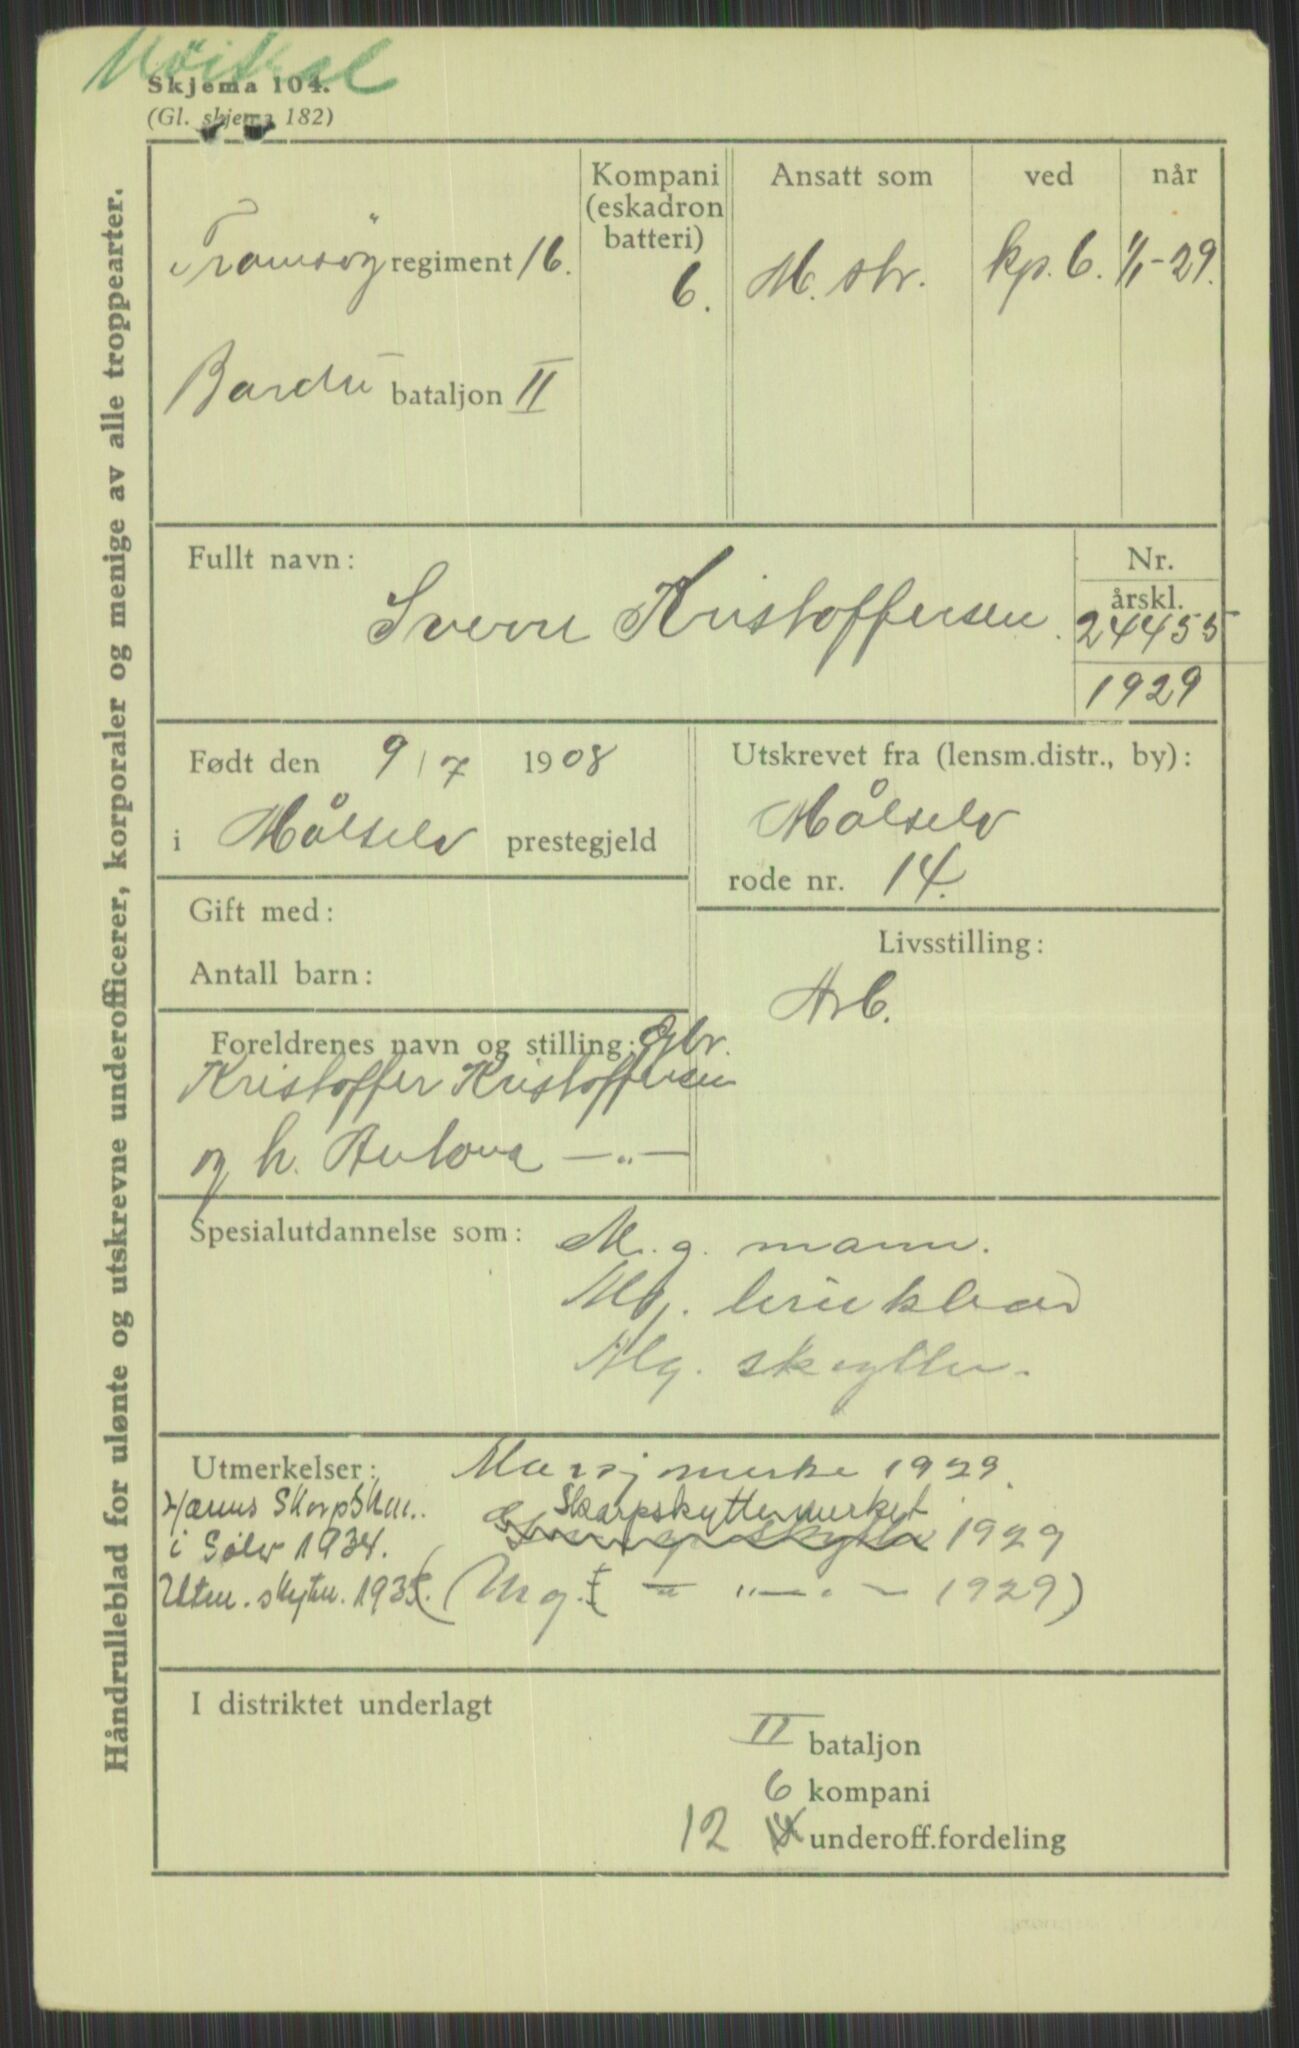 Skjema 104.
(Gl. skjema 182)
Håndrulleblad for ulønte og utskrevne underofficerer, korporaler og menige av alle troppearter.
Kompani
(eskadron
batteri)
6.
Ansatt som
ved
når
Tromsøy regiment 16.
M. str.
kp. 6.
1/1-29.
Bardu bataljon II
Fullt navn:
Sverre Kristoffersen
Nr.
årskl.
24455
1929
Født den 9/7 1908
i Målselv prestegjeld
Utskrevet fra (lensm.distr., by):
Målselv
rode nr. 14.
Gift med:
Antall barn:
Livsstilling:
Arb.
Foreldrenes navn og stilling: Gbr.
Kristoffer Kristoffersen
og h. Antona —„—
Spesialutdannelse som:
M.g. mann.
Mg.
Mg. skytter.
Utmerkelser: Marsjmerke 1929.
Hærens Skarpskm..
i Sølv 1934.
Skarpskyttermerket 1929
Uten. skyten. 1935.
(Mg. — „ — „ — 1929)
I distriktet underlagt
II bataljon
6 kompani
12 underoff.fordeling